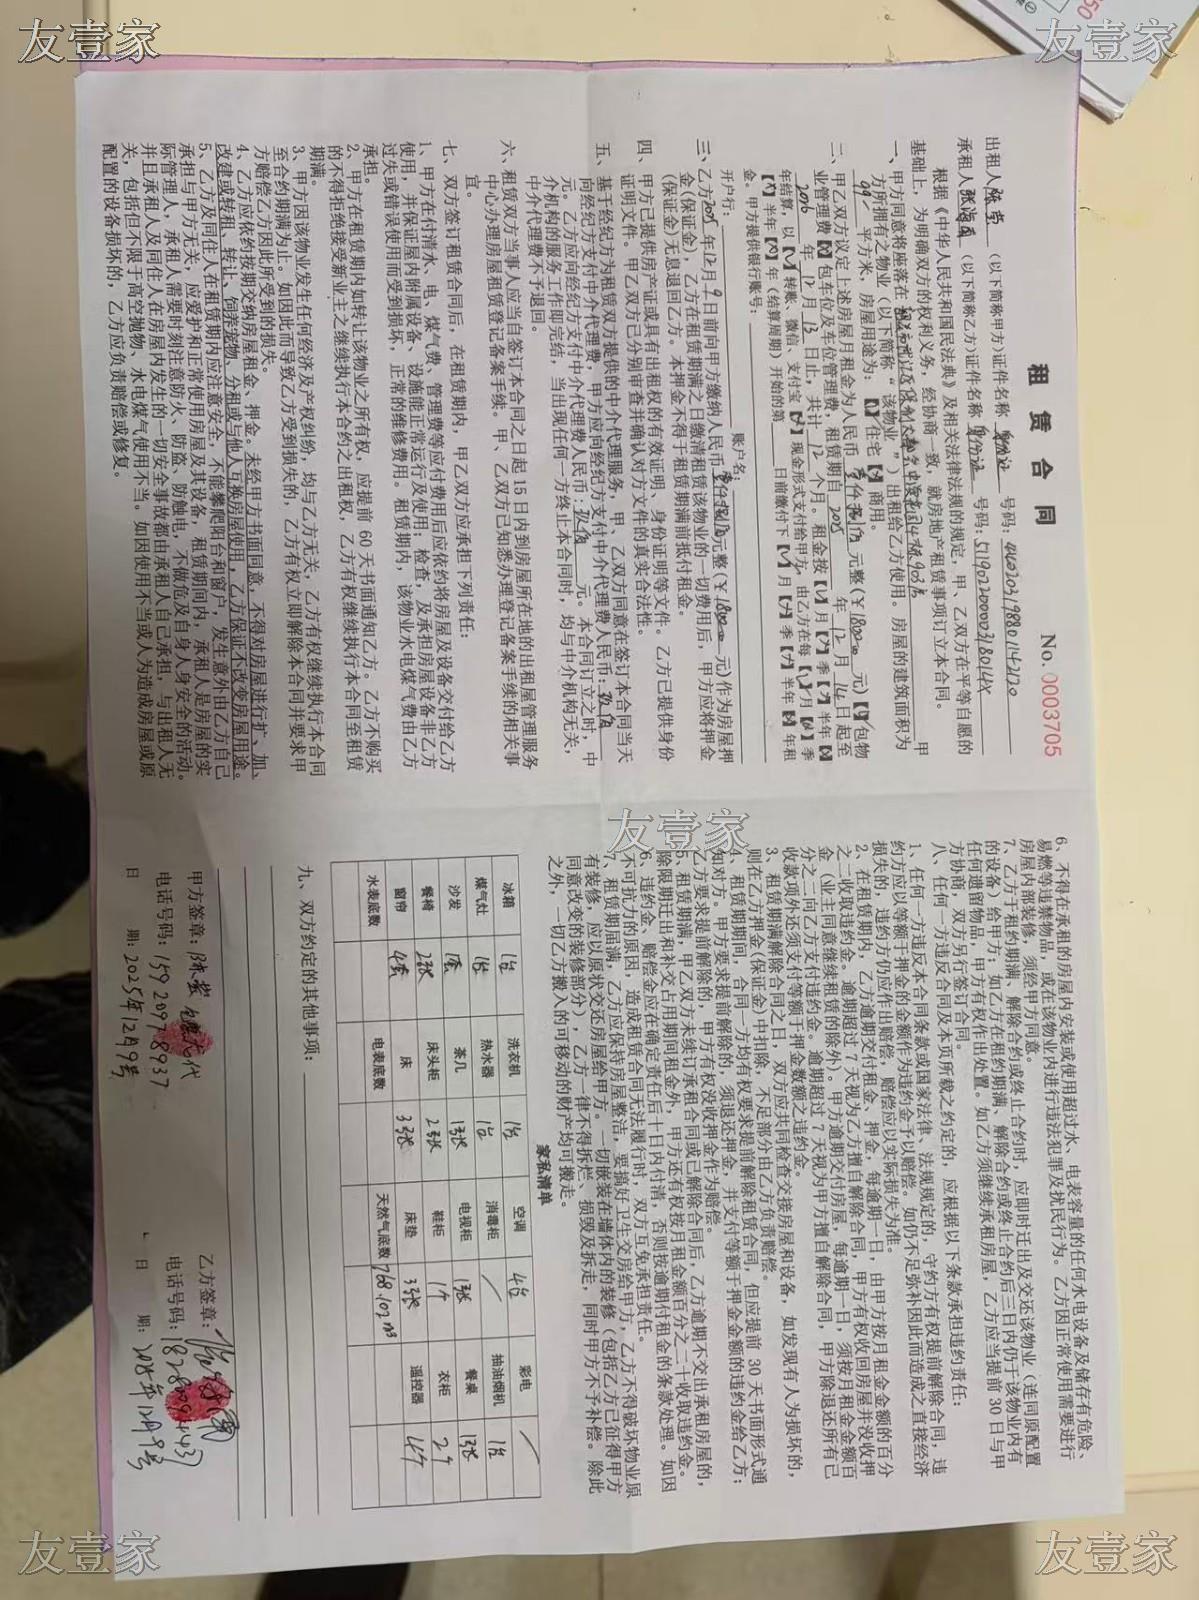 友壹家
友壹家
租 赁 合 同
No. 0003705
出租人 (以下简称甲方)证件名称 身份证 号码:
承租人 (以下简称乙方)证件名称 身份证 号码:
根据《中华人民共和国民法典》及相关法律法规的规定，甲、乙双方在平等自愿的
基础上，为明确双方的权利义务，经协商一致，就房地产租赁事项订立本合同。
一、甲方同意将座落在 甲
方所拥有之物业（以下简称“该物业”）出租给乙方使用。房屋的建筑面积为
平方米，房屋用途为：【√】住宅【×】商用。
二、甲乙双方议定上述房屋月租金为人民币 壹仟捌佰 元整(￥1800 元)【 】包物
业管理费【 】包车位及车位管理费，租赁期自 2025 年 12 月 14 日起至
2026 年 12 月 13 日止，共计 12 个月。租金按【√】月【×】季【×】半年【×】
年结算，以【√】转账、微信、支付宝【×】现金形式支付给甲方，由乙方在每【√】月【×】季
【×】半年【×】年（结算周期）开始的第 日前缴付下【√】月【×】季【×】半年【×】年租
金。甲方提供银行账号：
开户行： 账户名：
三、乙方2025年12月9日前向甲方缴纳人民币壹仟捌佰元整(￥1800 元)作为房屋押
金(保证金)，乙方在租赁期满之日缴清租赁该物业的一切费用后，甲方应将押金
(保证金)无息退回乙方。本押金不得于租赁期满前抵付租金。
四、甲方已提供房产证或具有出租权的有效证明、身份证明等文件。乙方已提供身份
证明文件。甲乙双方已分别审查并确认对方文件的真实合法性。
五、基于经纪方为租赁双方提供的中介代理服务，甲、乙双方同意在签订本合同当天
向经纪方支付中介代理费，甲方应向经纪方支付中介代理费人民币：
元。乙方应向经纪方支付中介代理费人民币： 元。本合同订立之时，中
介机构的服务工作即完结，当出现任何一方终止本合同时，均与中介机构无关，
中介代理费不予退回。
六、租赁双方当事人应当自签订本合同之日起 15 日内到房屋所在地的出租屋管理服务
中心办理房屋租赁登记备案手续。甲、乙双方已知悉办理登记备案手续的相关事
宜。
七、双方签订租赁合同后，在租赁期内，甲乙双方应承担下列责任：
1、甲方在付清水、电、煤气费、管理费等应付费用后应依约将房屋及设备交付给乙方
使用，并保证屋内附属设备、设施能正常运行及使用；检查，及承担房屋设备非乙方
过失或错误使用而受到损坏，正常的维修费用。租赁期内，该物业水电煤气费由乙方
承担。
2、甲方在租赁期内如转让该物业之所有权，应提前 60 天书面通知乙方。乙方不购买
的不得拒绝接受新业主之继续执行本合约之出租权，乙方有权继续执行本合同至租赁
期满。
3、甲方因该物业发生任何经济及产权纠纷，均与乙方无关，乙方有权继续执行本合同
至合约期满为止。如因此而导致乙方受到损失的，乙方有权立即解除本合同并要求甲
方赔偿乙方因此所受到的损失。
4、乙方应依约按期交纳房屋租金、押金。未经甲方书面同意，不得对房屋进行扩、加、
改建或转租、转让、饲养宠物、分租或与他人互换房屋使用，乙方保证不改变房屋用途。
5、乙方及同住人在租赁期内应注意安全，不能攀爬阳台和窗户，发生意外由乙方自己
承担与甲方无关，应爱护和正常使用房屋及其设备，租赁期间内，承租人是房屋的实
际管理人，承租人需要时刻注意防火、防盗、防触电，不做危及自身人身安全的活动。
并且承租人及同住人在房屋内发生的一切安全事故都由承租人自己承担，与出租人无
关，包括但不限于高空抛物、水电煤气使用不当。如因使用不当或人为造成房屋或原
配置的设备损坏的，乙方应负责赔偿或修复。
友壹家
6、不得在承租的房屋内安装或使用超过水、电表容量的任何水电设备及储存有危险、
易燃等违禁物品，或在该物业内进行违法犯罪及扰民行为。乙方因正常使用需要进行
房屋内部装修，须经甲方同意。
7、乙方于租约期满、解除合约或终止合约时，应即时迁出及交还该物业（连同原配置
的设备）给甲方；如乙方在租约期满、解除合约或终止合约后三日内仍于该物业内有
任何遗留物品，甲方有权作出处置。如乙方须继续承租房屋，乙方应当提前 30 日与甲
方协商，双方另行签订合同。
八、任何一方违反合同及本页所载之约定的，应根据以下条款承担违约责任：
1、任何一方违反本合同条款或国家法律、法规规定的，守约方有权提前解除合同，违
约方应以等额于押金的金额作为违约金予以赔偿。如仍不足弥补因此而造成之直接经济
损失的，违约方仍应作出赔偿，赔偿应以实际损失为准。
2、在租赁期内，乙方逾期交付租金、押金，每逾期一日，由甲方按月租金金额的百分
之二收取违约金。逾期超过 7 天视为乙方擅自解除合同，甲方有权收回房屋并没收押
金（业主同意继续租赁的除外）。甲方逾期交付房屋，每逾期一日，须按月租金金额百
分之二向乙方支付违约金。逾期超过 7 天视为甲方擅自解除合同，甲方除退还所有已
收款项外还须支付等额于押金数额之违约金。
3、租赁期满解除合同之日，双方应共同检查交接房屋和设备，如发现有人为损坏的，
则在乙方押金(保证金)中扣除，不足部分由乙方负责赔偿。
4、租赁期期间，合同一方均有权要求提前解除租赁合同，但应提前 30 天书面形式通
知对方。甲方要求提前解除的，须退还押金，并支付等额于押金金额的违约金给乙方；
乙方要求提前解除的，甲方有权没收押金作为赔偿。
5、租赁期满，甲乙双方未续订承租合同或已解除合同后，乙方逾期不交出承租房屋的，
除限期迁出和补交占用期间租金外，甲方还有权按月租金金额百分之二十收取违约金。
6、违约金、赔偿金应在确定责任后十日内付清，否则按逾期付租金的条款处理。如因
不可抗力的原因，造成租赁合同无法履行时，双方互免承担责任。
7、租赁期届满，乙方应保持房屋整洁，要搞好卫生交房给甲方，乙方不得破坏物业原
有装修，应以原状交还房屋给甲方。一切嵌装在墙体内的装修（包括乙方已征得甲方
同意改变的装修部分），乙方一律不得拆拦、损毁及拆走，同时甲方不予补偿。除此
之外，一切乙方搬入的可移动的财产均可搬走。
家私清单
冰箱 1台 洗衣机 1台 空调 4台 彩电 /
煤气灶 1台 热水器 1台 消毒柜 / 抽油烟机 1台
沙发 1套 茶几 1张 电视柜 1张 餐桌 1张
餐椅 2张 床头柜 2张 鞋柜 1个 衣柜 2个
窗帘 4套 床 3张 床垫 3张 遥控器 4个
水表底数 电表底数 天然气底数 768.102 m3
九、双方约定的其他事项：
甲方签章： 乙方签章：
电话号码：15920978937 电话号码：
日 期：2025年12月9号 日 期：2025年12月9号
友壹家
友壹家